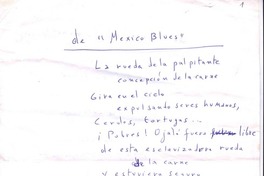 1
de "Mexico Blues"
La rueda de la palpitante
concepción de la carne
Gira en el cielo
expulsando seres humanos,
Cerdos, tortugas...
¡Pobres! Ojalá fuese libre
de esta esclavizadora rueda
de la carne
y estuviera seguro